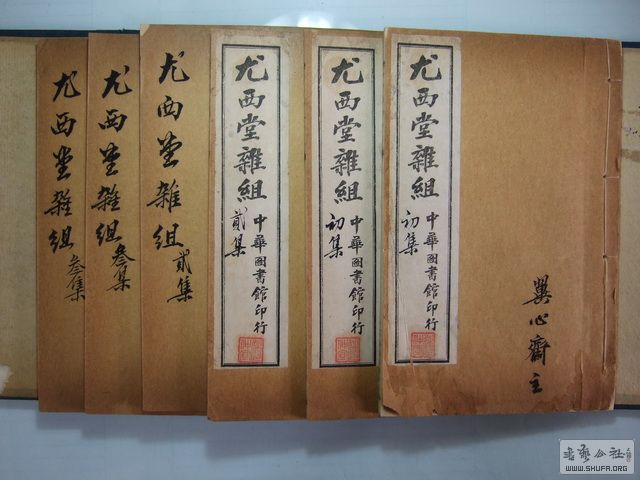 尤西堂雜組
初集
中華圖書館印行
巽心齋主
尤西堂雜組
初集
中華圖書館印行
尤西堂雜組
貳集
中華圖書館印行
尤西堂雜組 貳集
尤西堂雜組 叁集
尤西堂雜組 叁集
WWW.SHUFA.ORG